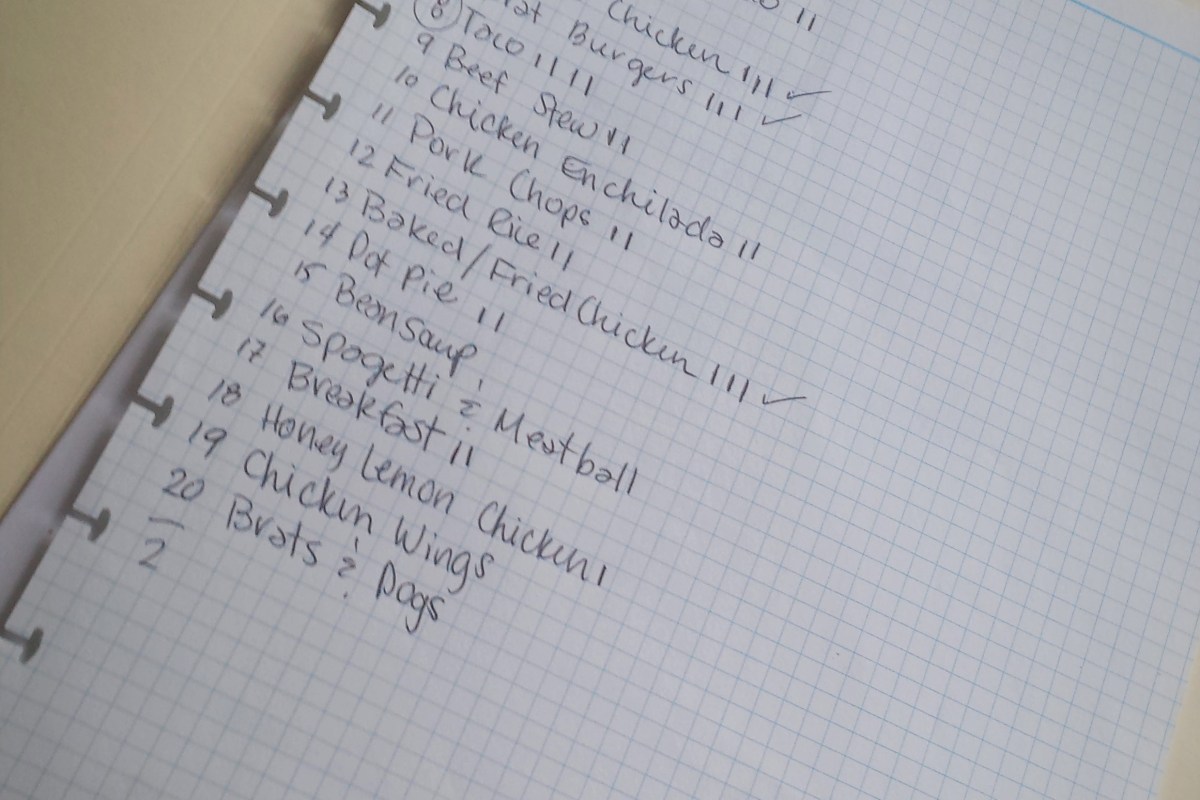 II
Chicken III ✓
Burgers III ✓
8 Taco II II
9 Beef Stew II
10 Chicken Enchilada II
11 Pork Chops II
12 Fried Rice II
13 Baked/Fried Chicken III ✓
14 Pot Pie II
15 Bean Soup I
16 Spagetti & Meatball
17 Breakfast II
18 Honey Lemon Chicken I
19 Chicken Wings
20 Brats & Dogs
2